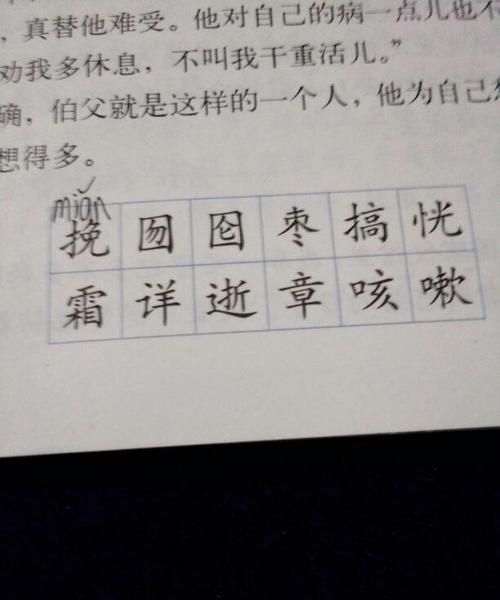 ，真替他难受。他对自己的病一点儿也不
劝我多休息，不叫我干重活儿。”
确，伯父就是这样的一个人，他为自己
想得多。
miǎn
挽 囫 囵 枣 搞 恍
霜 详 逝 章 咳 嗽